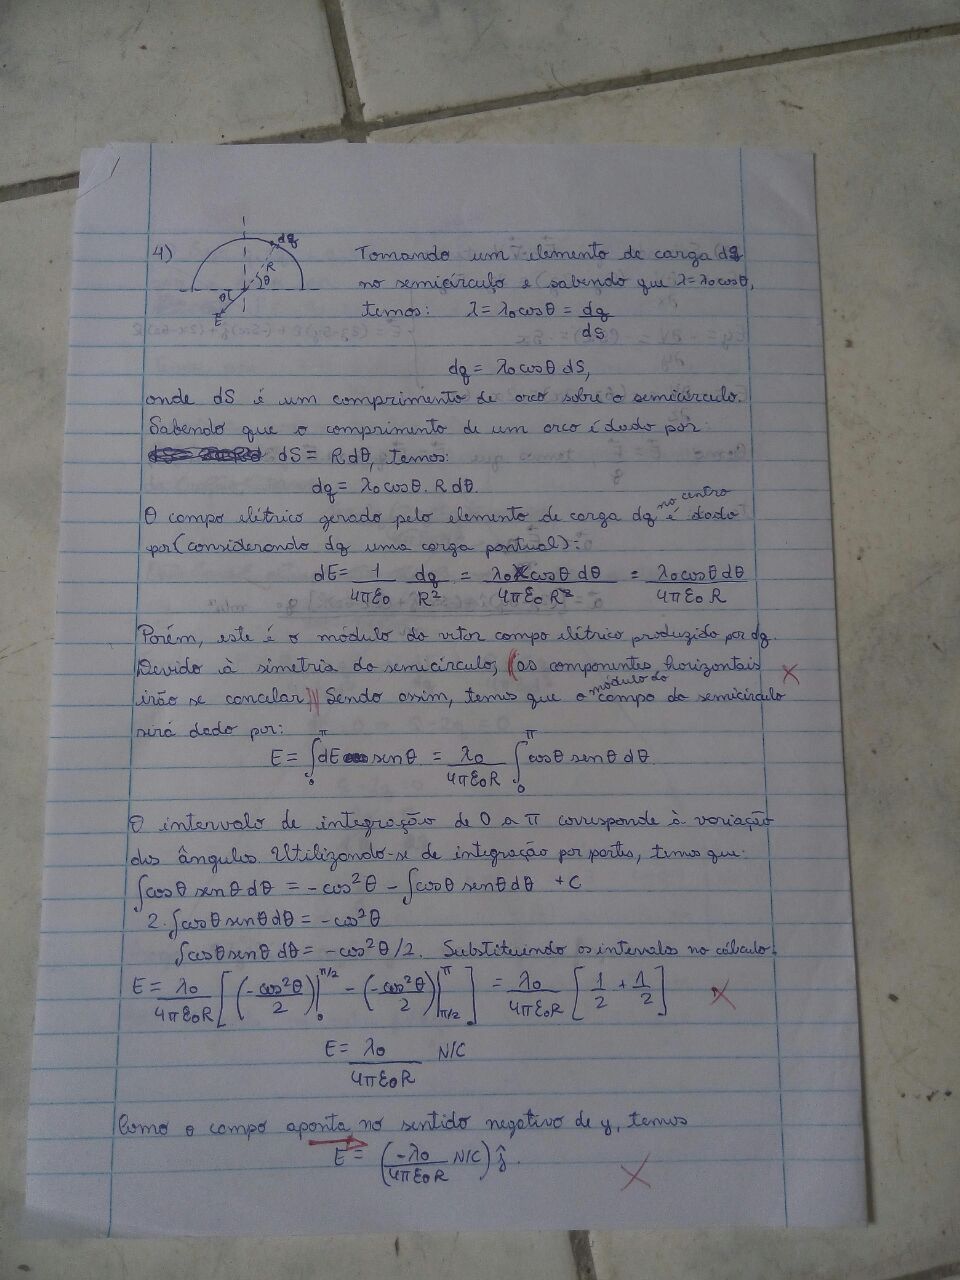 4)
dq
R
θ
θ
E
Tomando um elemento de carga dq
no semicírculo e sabendo que λ=λ₀cosθ,
temos: λ=λ₀cosθ = dq/dS
dq = λ₀cosθ dS,
onde dS é um comprimento de arco sobre o semicírculo.
Sabendo que o comprimento de um arco é dado por
dS = R dθ, temos:
dq = λ₀cosθ. R dθ.
O campo elétrico gerado pelo elemento de carga dq no centro é dado
por (considerando dq uma carga pontual):
dE = 1/4πε₀ dq/R² = λ₀Rcosθ dθ/4πε₀R² = λ₀cosθ dθ/4πε₀R
Porém, este é o módulo do vetor campo elétrico produzido por dq.
Devido à simetria do semicírculo, (as componentes horizontais
irão se cancelar) Sendo assim, temos que o módulo do campo do semicírculo
será dado por:
E = ∫₀^π dE senθ = λ₀/4πε₀R ∫₀^π cosθ senθ dθ.
O intervalo de integração de 0 a π corresponde à variação
dos ângulos. Utilizando-se de integração por partes, temos que:
∫cosθ senθ dθ = -cos²θ - ∫cosθ senθ dθ + C
2.∫cosθ senθ dθ = -cos²θ
∫cosθ senθ dθ = -cos²θ/2. Substituindo os intervalos no cálculo:
E = λ₀/4πε₀R [(-cos²θ/2)|₀^π/2 - (-cos²θ/2)|π/2^π] = λ₀/4πε₀R [1/2 + 1/2]
E = λ₀/4πε₀R N/C
Como o campo aponta no sentido negativo de y, temos
E = (-λ₀/4πε₀R N/C) ĵ.